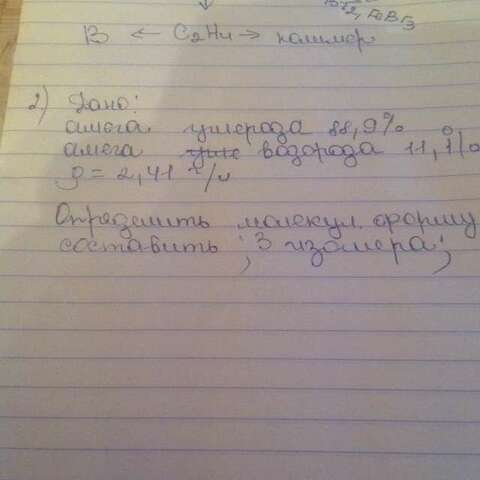 Br2, FeBr3
B ← C2H4 → полимер
2) Дано:
омега углерода 88,9%
омега водорода 11,1%
ρ = 2,41 г/л
Определить молекул. форму
составить 3 изомера;